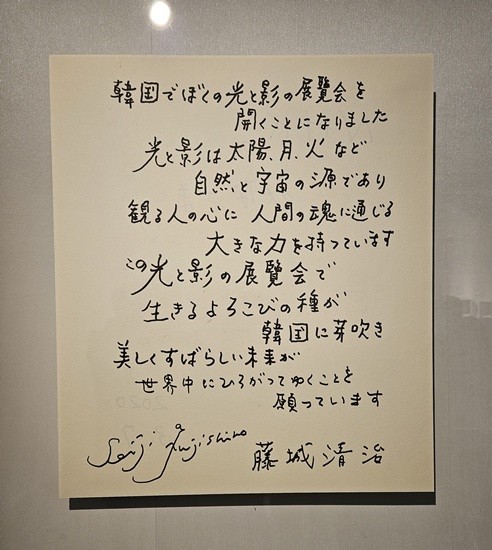 韓国でぼくの光と影の展覧会を
開くことになりました
光と影は太陽、月、火など
自然と宇宙の源であり
観る人の心に 人間の魂に通じる
大きな力を持っています
この光と影の展覧会で
生きるよろこびの種が
韓国に芽吹き
美しくすばらしい未来が
世界中にひろがってゆくことを
願っています
Seiji Fujishiro 藤城清治